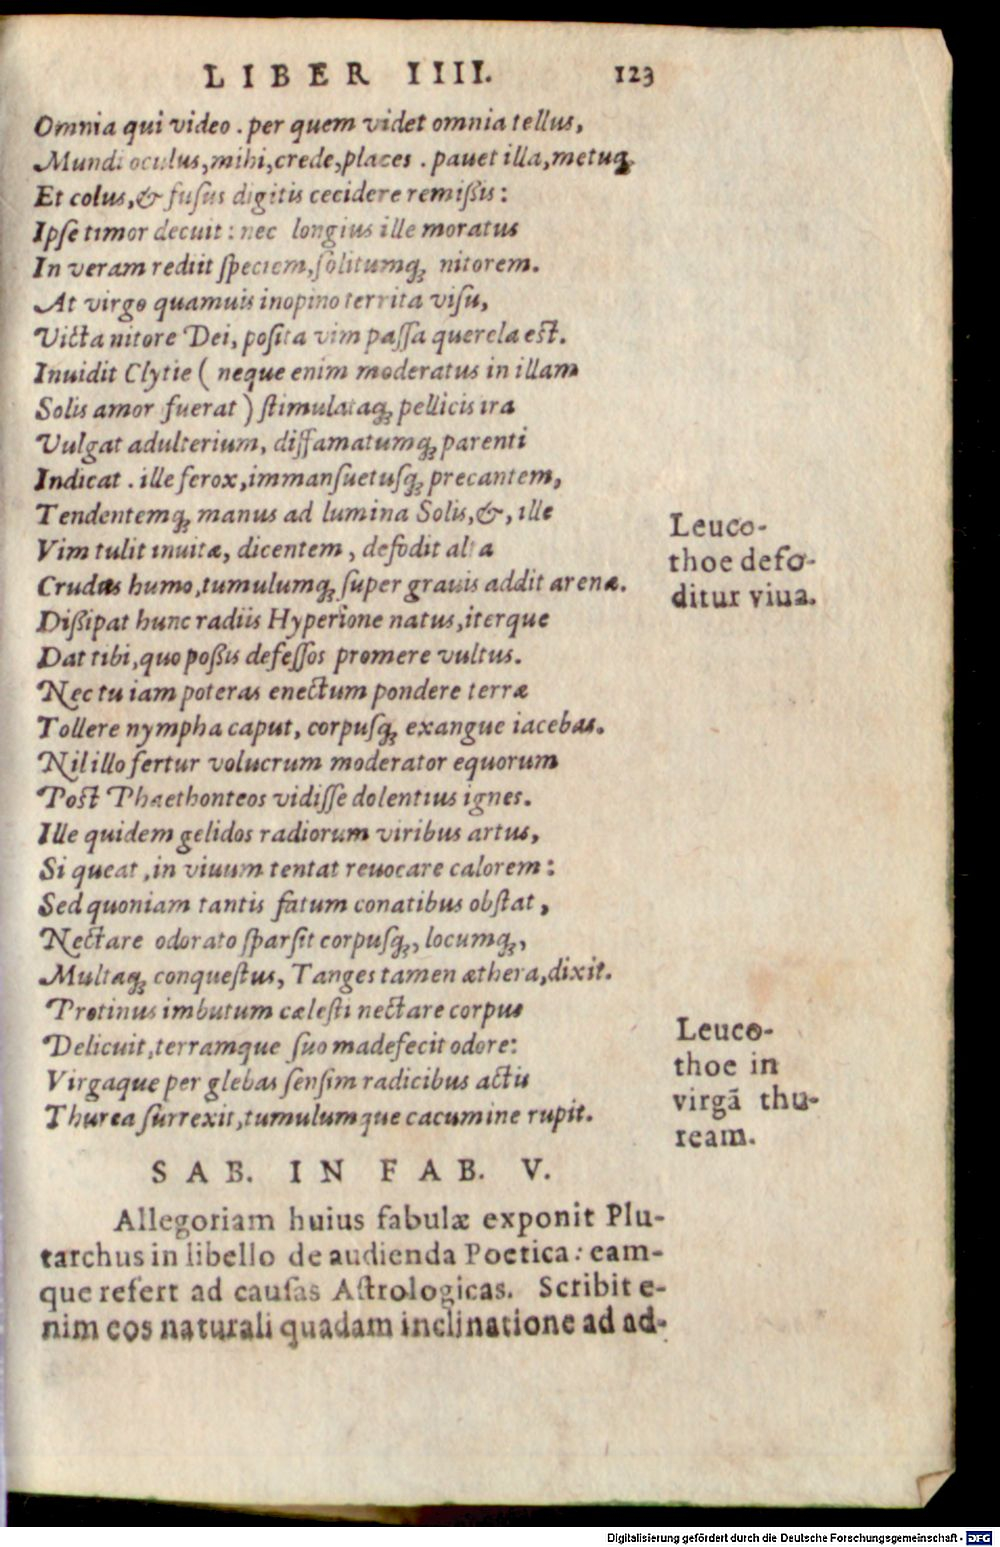 LIBER IIII. 123
Omnia qui video . per quem videt omnia tellus,
Mundi oculus, mihi, crede, places . pauet illa, metuq;
Et colus, & fusus digitis cecidere remißis:
Ipse timor decuit: nec longius ille moratus
In veram rediit speciem, solitumq; nitorem.
At virgo quamuis inopino territa visu,
Victa nitore Dei, posita vim passa querela est.
Inuidit Clytie ( neque enim moderatus in illam
Solis amor fuerat ) stimulataq; pellicis ira
Vulgat adulterium, diffamatumq; parenti
Indicat . ille ferox, immansuetusq; precantem,
Tendentemq; manus ad lumina Solis, &, ille
Vim tulit inuitæ, dicentem, defodit alta
Crudus humo, tumulumq; super grauis addit arenæ.
Dißipat hunc radiis Hyperione natus, iterque
Dat tibi, quo poßis defessos promere vultus.
Nec tu iam poteras enectum pondere terræ
Tollere nympha caput, corpusq; exangue iacebas.
Nil illo fertur volucrum moderator equorum
Post Phaethonteos vidisse dolentius ignes.
Ille quidem gelidos radiorum viribus artus,
Si queat, in viuum tentat reuocare calorem:
Sed quoniam tantis fatum conatibus obstat,
Nectare odorato sparsit corpusq;, locumq;,
Multaq; conquestus, Tanges tamen æthera, dixit.
Protinus imbutum cælesti nectare corpus
Delicuit, terramque suo madefecit odore:
Virgaque per glebas sensim radicibus actis
Thurea surrexit, tumulumque cacumine rupit.
Leuco-
thoe defo-
ditur viua.
Leuco-
thoe in
virgã thu-
ream.
SAB. IN FAB. V.
Allegoriam huius fabulæ exponit Plu-
tarchus in libello de audienda Poetica: eam-
que refert ad causas Astrologicas. Scribit e-
nim eos naturali quadam inclinatione ad ad-
Digitalisierung gefördert durch die Deutsche Forschungsgemeinschaft - DFG